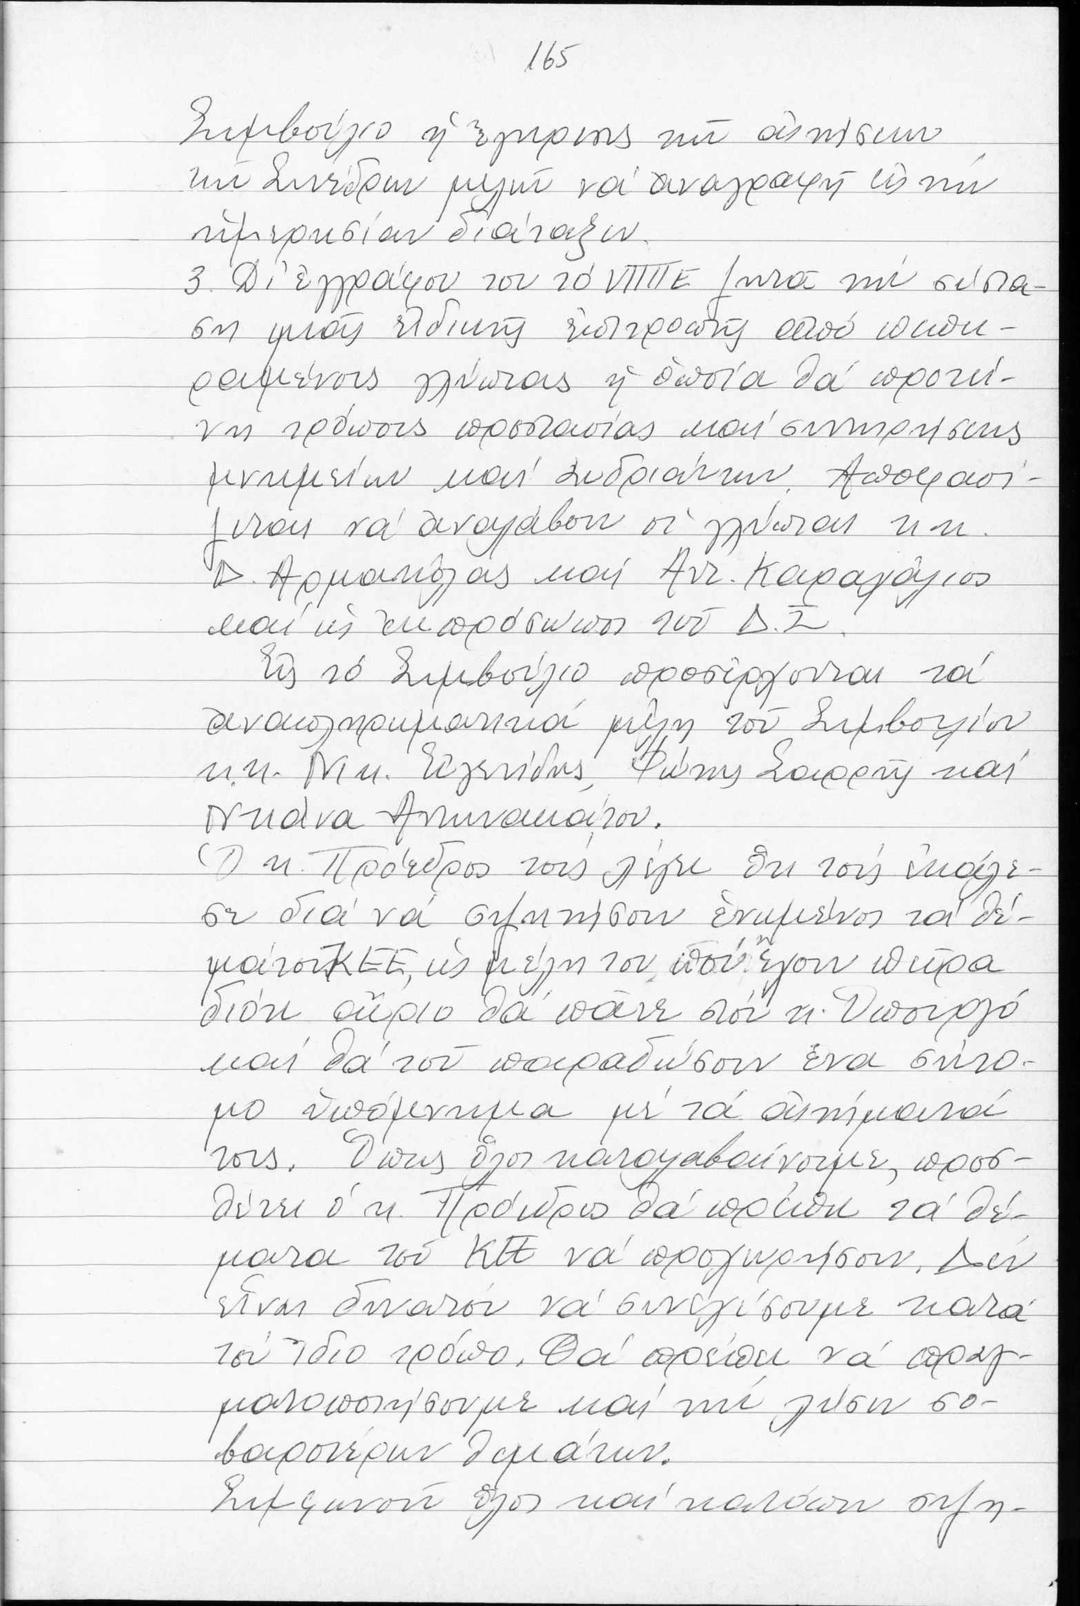 165
Συμβούλιο ἡ ἔγκρισις τῶν αἰτήσεων
τῶν Συνέδρων μελῶν νά ἀναγραφῇ εἰς τήν
ἡμερησίαν διάταξιν.
3. Δι' ἐγγράφου του τό ΥΠΠΕ ζητᾶ τήν σύστα-
ση μιᾶς εἰδικῆς ἐπιτροπῆς ἀπό πεπει-
ραμένους γλύπτας ἡ ὁποία θά προτεί-
νη τρόπους προστασίας καί συντηρήσεως
μνημείων καί ἀνδριάντων. Ἀποφασί-
ζεται νά ἀναλάβουν οἱ γλύπται κ.κ.
Δ. Αρμακόλας καί Αντ. Καραχάλιος
καί ὡς ἐκπρόσωποι τοῦ Δ.Σ.
Εἰς τό Συμβούλιο προσέρχονται τά
ἀναπληρωματικά μέλη τοῦ Συμβουλίου
κ.κ. Νικ. Εὐγενίδης, Φώτης Σαρρῆς καί
Νκάνα Αντωνακάτου.
Ὁ κ. Πρόεδρος τούς λέγει ὅτι τούς ἐκάλε-
σε διά νά συζητήσουν ἑνωμένοι τά θέ-
ματα τοῦ ΚΕΕ, ὡς μέλη του πού ἔχουν πεῖρα
διότι αὔριο θά πᾶνε στόν κ. Ὑπουργό
καί θά τοῦ παραδώσουν ἕνα σύντο-
μο ὑπόμνημα μέ τά αἰτήματά
τους. Ὅπως ὅλοι καταλαβαίνουμε, προσ-
θέτει ὁ κ. Πρόεδρος θά πρέπει τά θέ-
ματα τοῦ ΚΕΕ νά προχωρήσουν. Δέν
εἶναι δυνατόν νά συνεχίσουμε κατά
τόν ἴδιο τρόπο. Θά πρέπει νά πραγ-
ματοποιήσουμε καί τήν λύσιν σο-
βαροτέρων θεμάτων.
Συμφωνοῦν ὅλοι καί κατόπιν συζη-